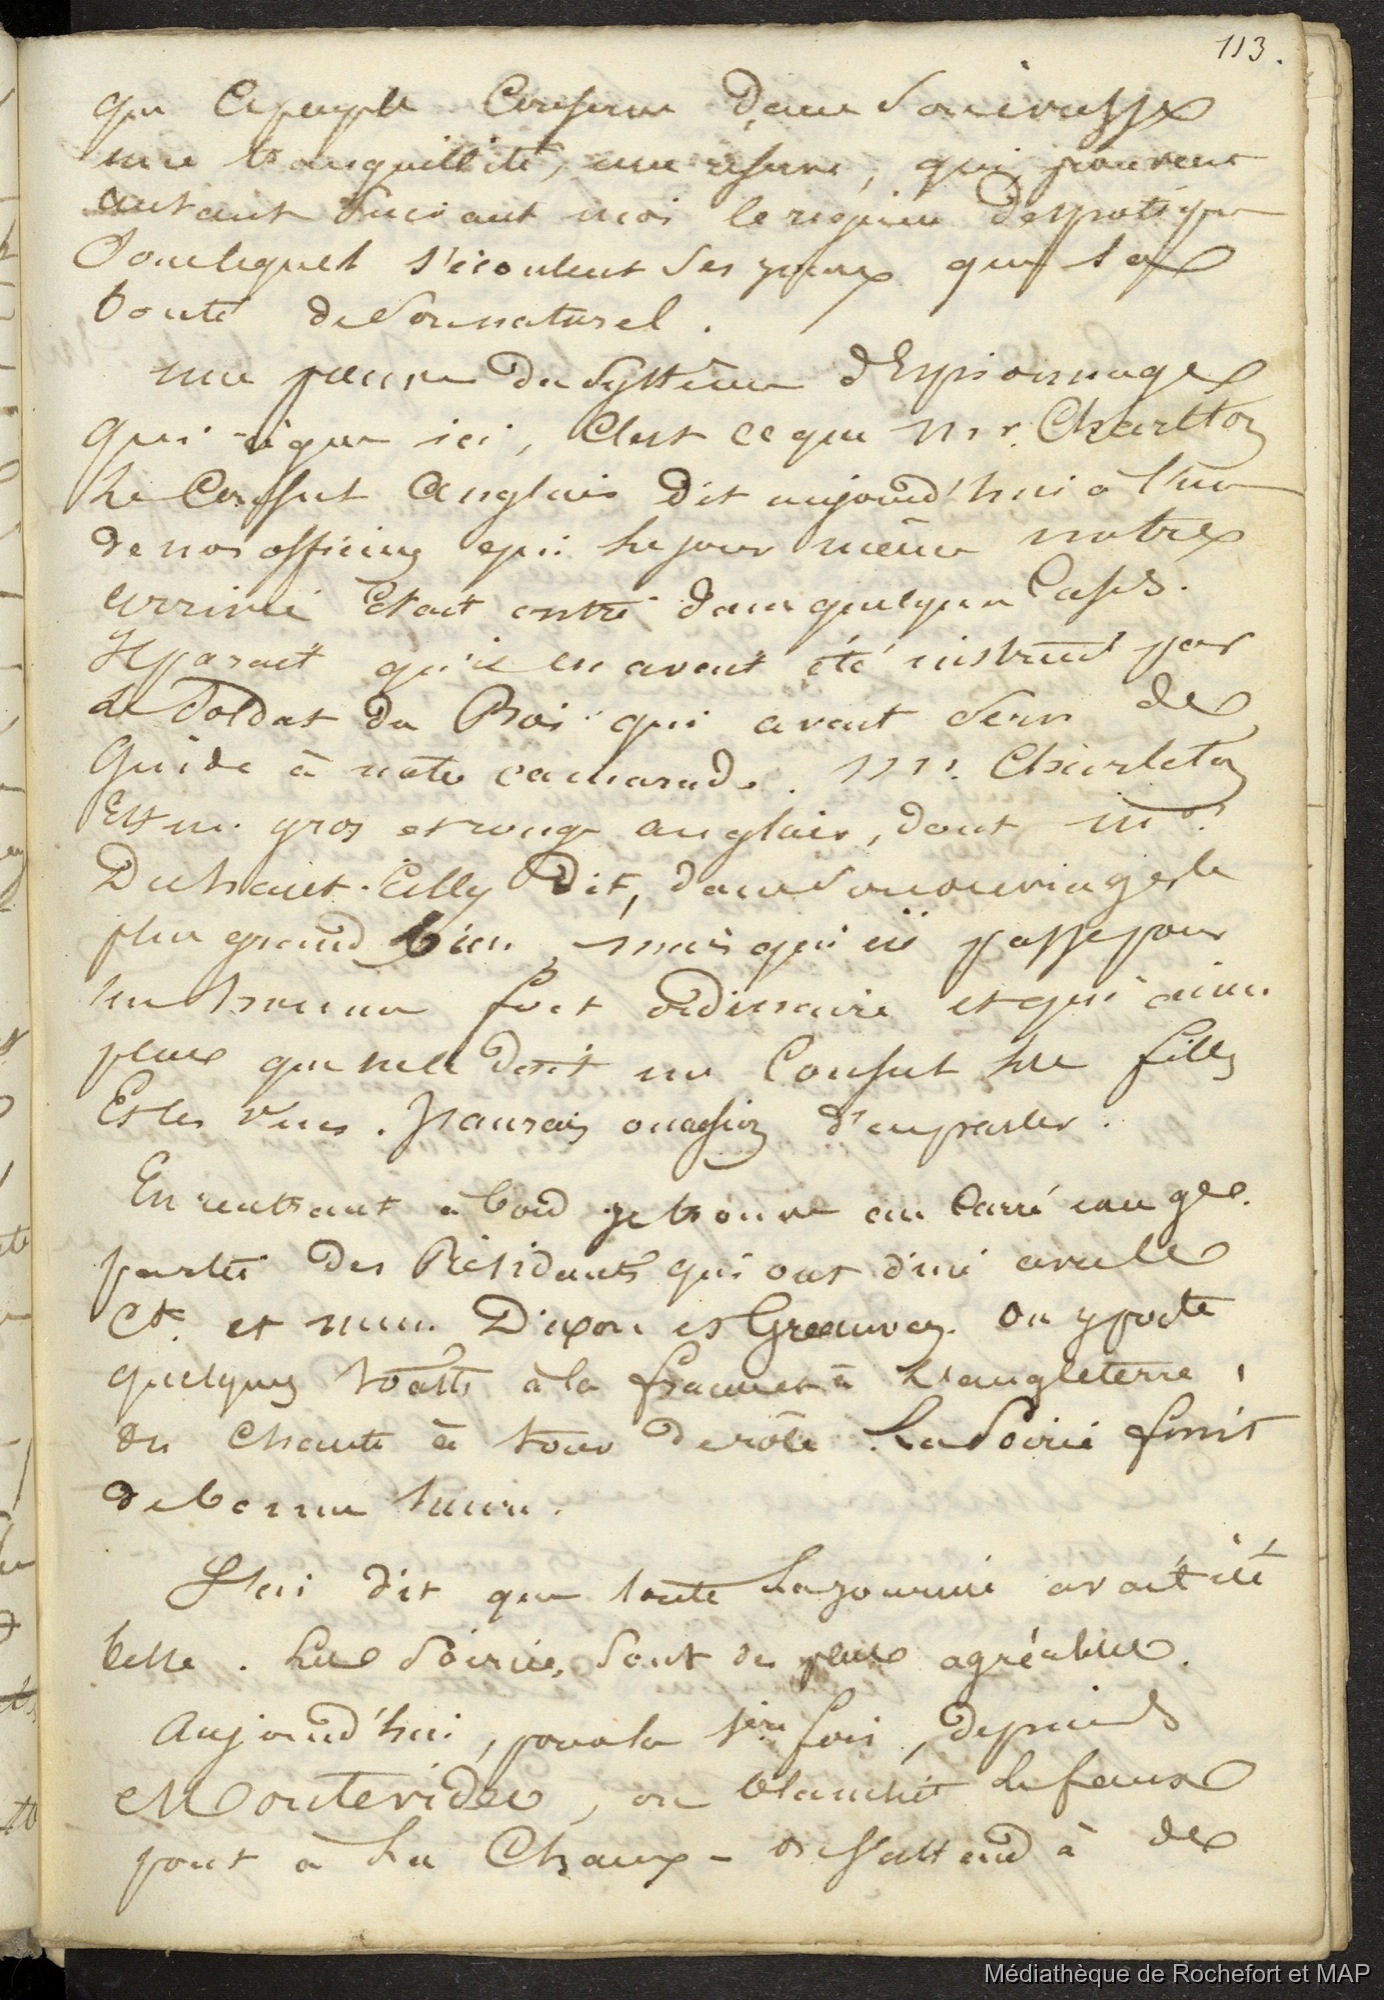 113.
que ce peuple conserve dans son ivresse
une tranquillité, une réserve, qui prouvent
autant suivant moi le régime despotique
sous lequel s'écoulent ses jours que la
bonté de son naturel.
une preuve du systême d'Espionnage
qui règne ici, c'est ce que Mr. Charlton
le Consul Anglais dit aujourd'hui à l'un
de nos officiers qui le jour même notre
arrivée était entré dans quelques cases.
Il parait qu'il en avait été instruit par
le Soldat du Roi qui avait servi de
Guide à notre camarade. Mr. Charleton
Est un gros et rouge anglais, dont Mr.
Duhaut-Cilly dit, dans son ouvrage, le
plus grand bien, mais qui ici passe pour
un homme fort ordinaire et qui aime
plus que ne le doit un Consul les filles
Et les vins. J'aurais occasion d'en parler.
En rentrant à bord je trouve au Carré une gde.
partie des Résidants qui ont diné avec le
Ct. et mm. Dixon et Greenway. On y porte
quelques toasts à la france et à l'angleterre,
on chante à tour de rôle. La Soirée finit
de bonne heure.
J'ai dit que toute la journée avait été
belle. Les Soirées, sont des plus agréables.
Aujourd'hui, pour la 1ère fois, depuis
Montevideo, on blanchit le faux
pont à la Chaux - on s'attend à de
Médiathèque de Rochefort et MAP